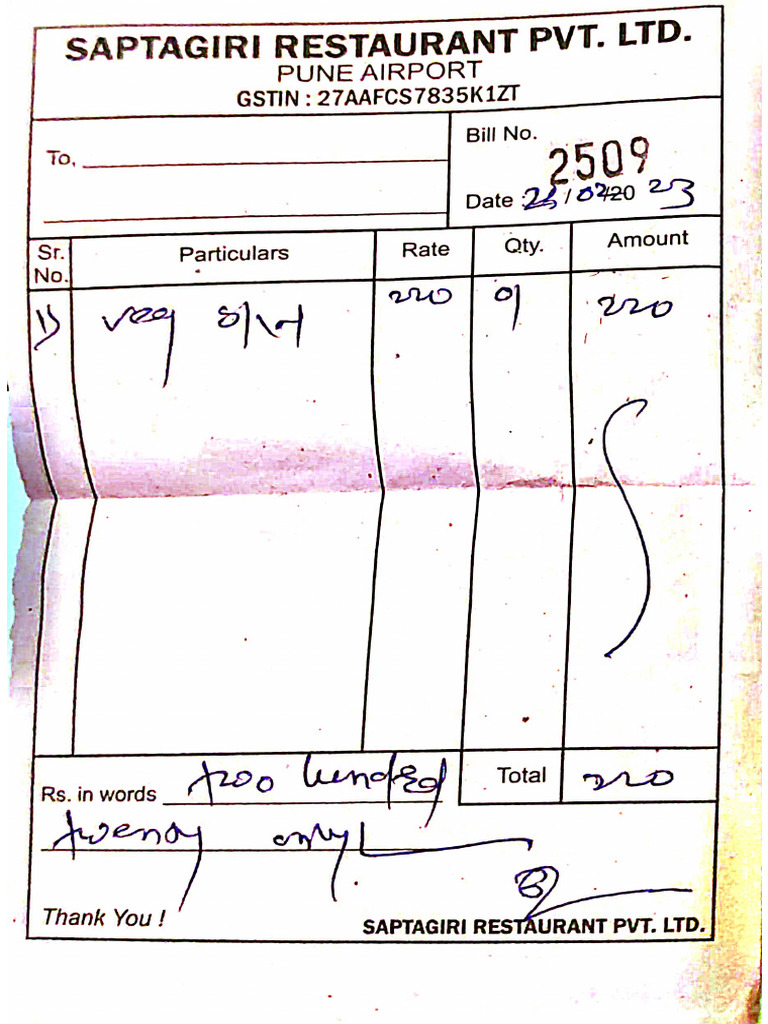 SAPTAGIRI RESTAURANT PVT. LTD.
PUNE AIRPORT
GSTIN : 27AAFCS7835K1ZT
To,
Bill No.
2509
Date : / 02/20 23
Sr. No. Particulars Rate Qty. Amount
1) veg 220 01 220
Rs. in words two hundred Total 220
twenty only
Thank You ! SAPTAGIRI RESTAURANT PVT. LTD.